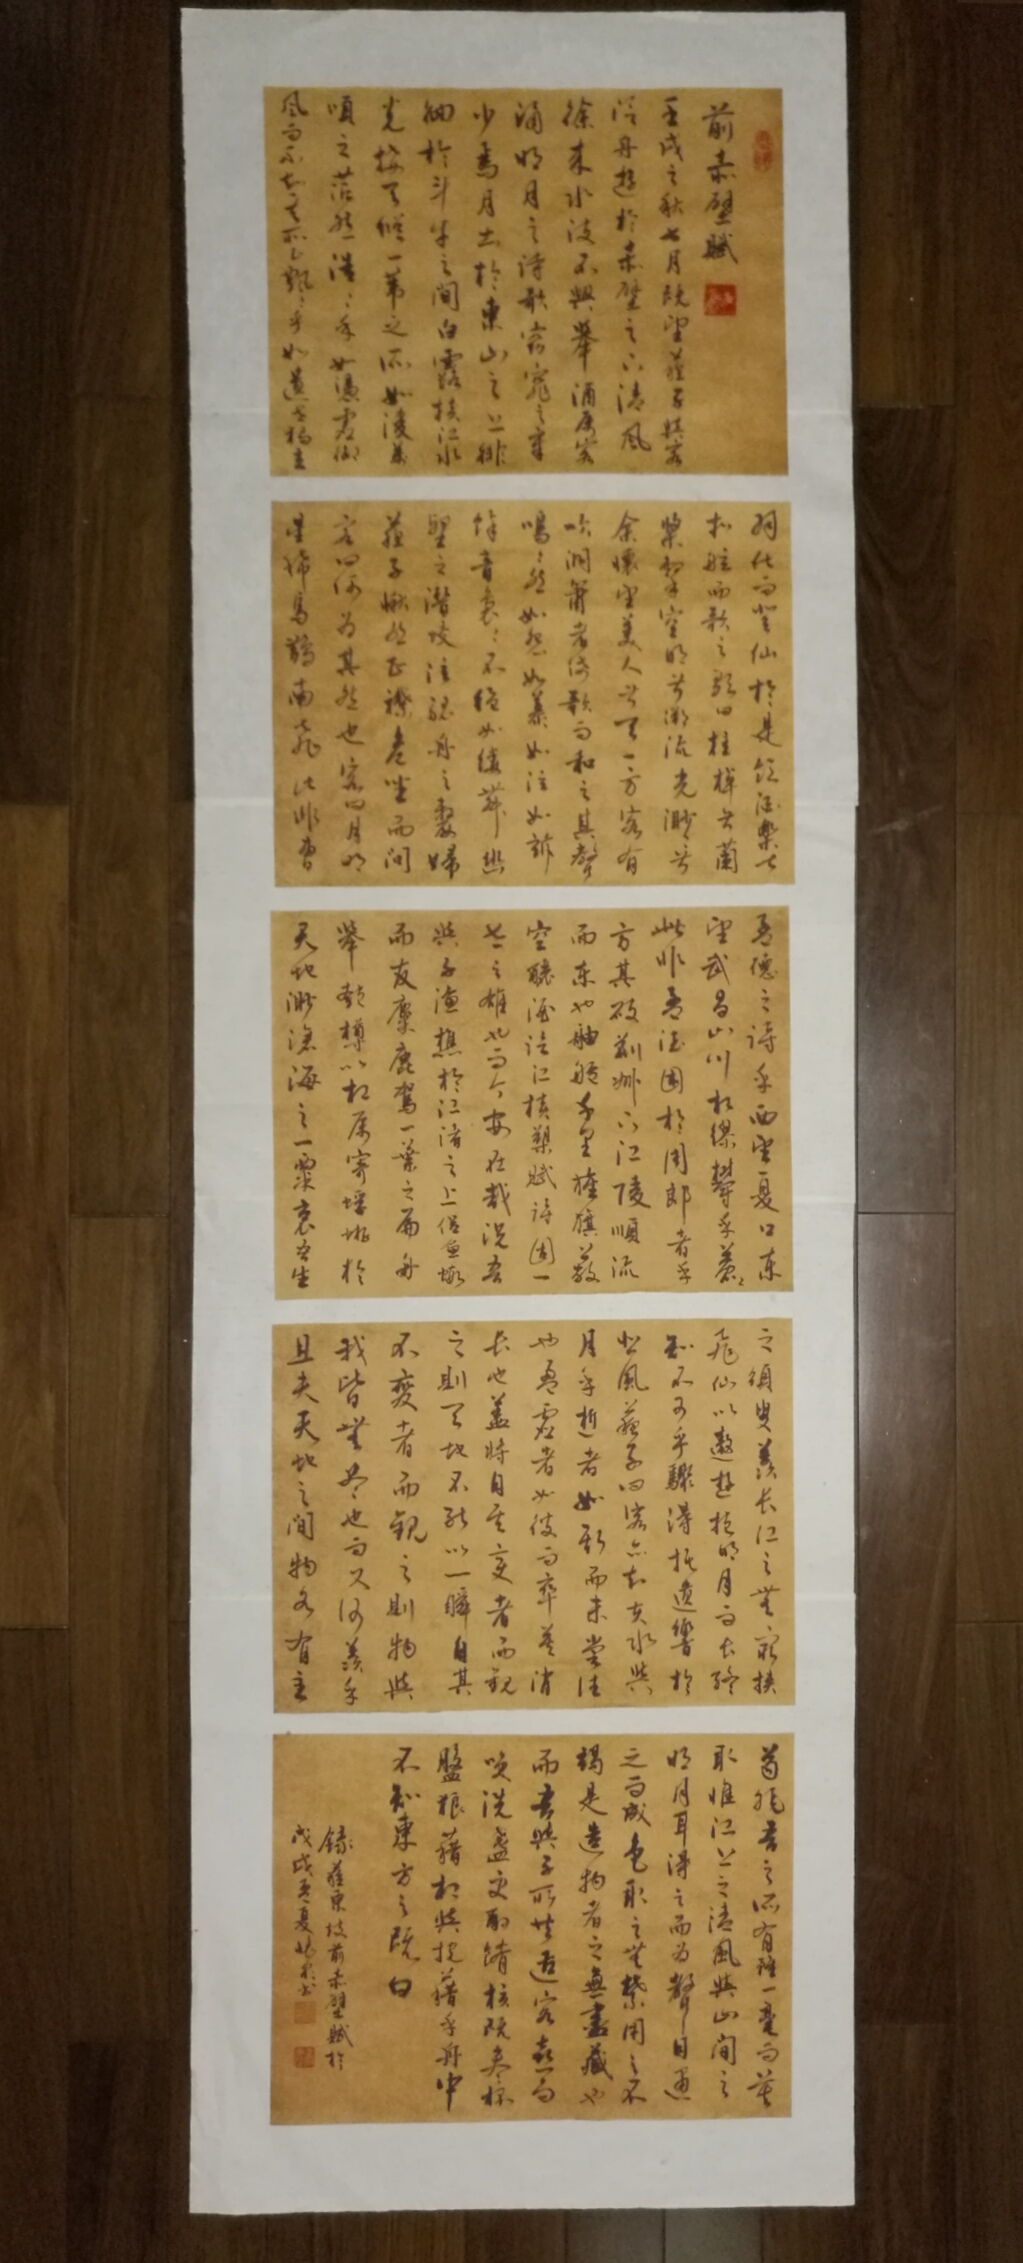 前赤壁賦
壬戌之秋七月既望蘇子與客
泛舟遊於赤壁之下清風
徐來水波不興舉酒屬客
誦明月之詩歌窈窕之章
少焉月出於東山之上徘
徊於斗牛之間白露橫江水
光接天縱一葦之所如凌萬
頃之茫然浩〻乎如馮虛御
風而不知其所止飄〻乎如遺世獨立
羽化而登仙於是飲酒樂甚
扣舷而歌之歌曰桂棹兮蘭
槳擊空明兮溯流光渺〻兮
余懷望美人兮天一方客有
吹洞簫者倚歌而和之其聲
嗚〻然如怨如慕如泣如訴
餘音裊〻不絕如縷舞幽
壑之潛蛟泣孤舟之嫠婦
蘇子愀然正襟危坐而問
客曰何為其然也客曰月明
星稀烏鵲南飛此非曹
孟德之詩乎西望夏口東
望武昌山川相繆鬱乎蒼〻
此非孟德困於周郎者乎
方其破荊州下江陵順流
而東也舳艫千里旌旗蔽
空釃酒臨江橫槊賦詩固一
世之雄也而今安在哉況吾
與子漁樵於江渚之上侶魚蝦
而友麋鹿駕一葉之扁舟
舉匏樽以相屬寄蜉蝣於
天地渺滄海之一粟哀吾生
之須臾羨長江之無窮挾
飛仙以遨遊抱明月而長終
知不可乎驟得托遺響於
悲風蘇子曰客亦知夫水與
月乎逝者如斯而未嘗往
也盈虛者如彼而卒莫消
長也蓋將自其變者而觀
之則天地不能以一瞬自其
不變者而觀之則物與
我皆無盡也而又何羨乎
且夫天地之間物各有主
苟非吾之所有雖一毫而莫
取惟江上之清風與山間之
明月耳得之而為聲目遇
之而成色取之無禁用之不
竭是造物者之無盡藏也
而吾與子所共適客喜而
笑洗盞更酌餚核既盡杯
盤狼藉相與枕藉乎舟中
不知東方之既白
錄蘇東坡前赤壁賦於
戊戌孟夏